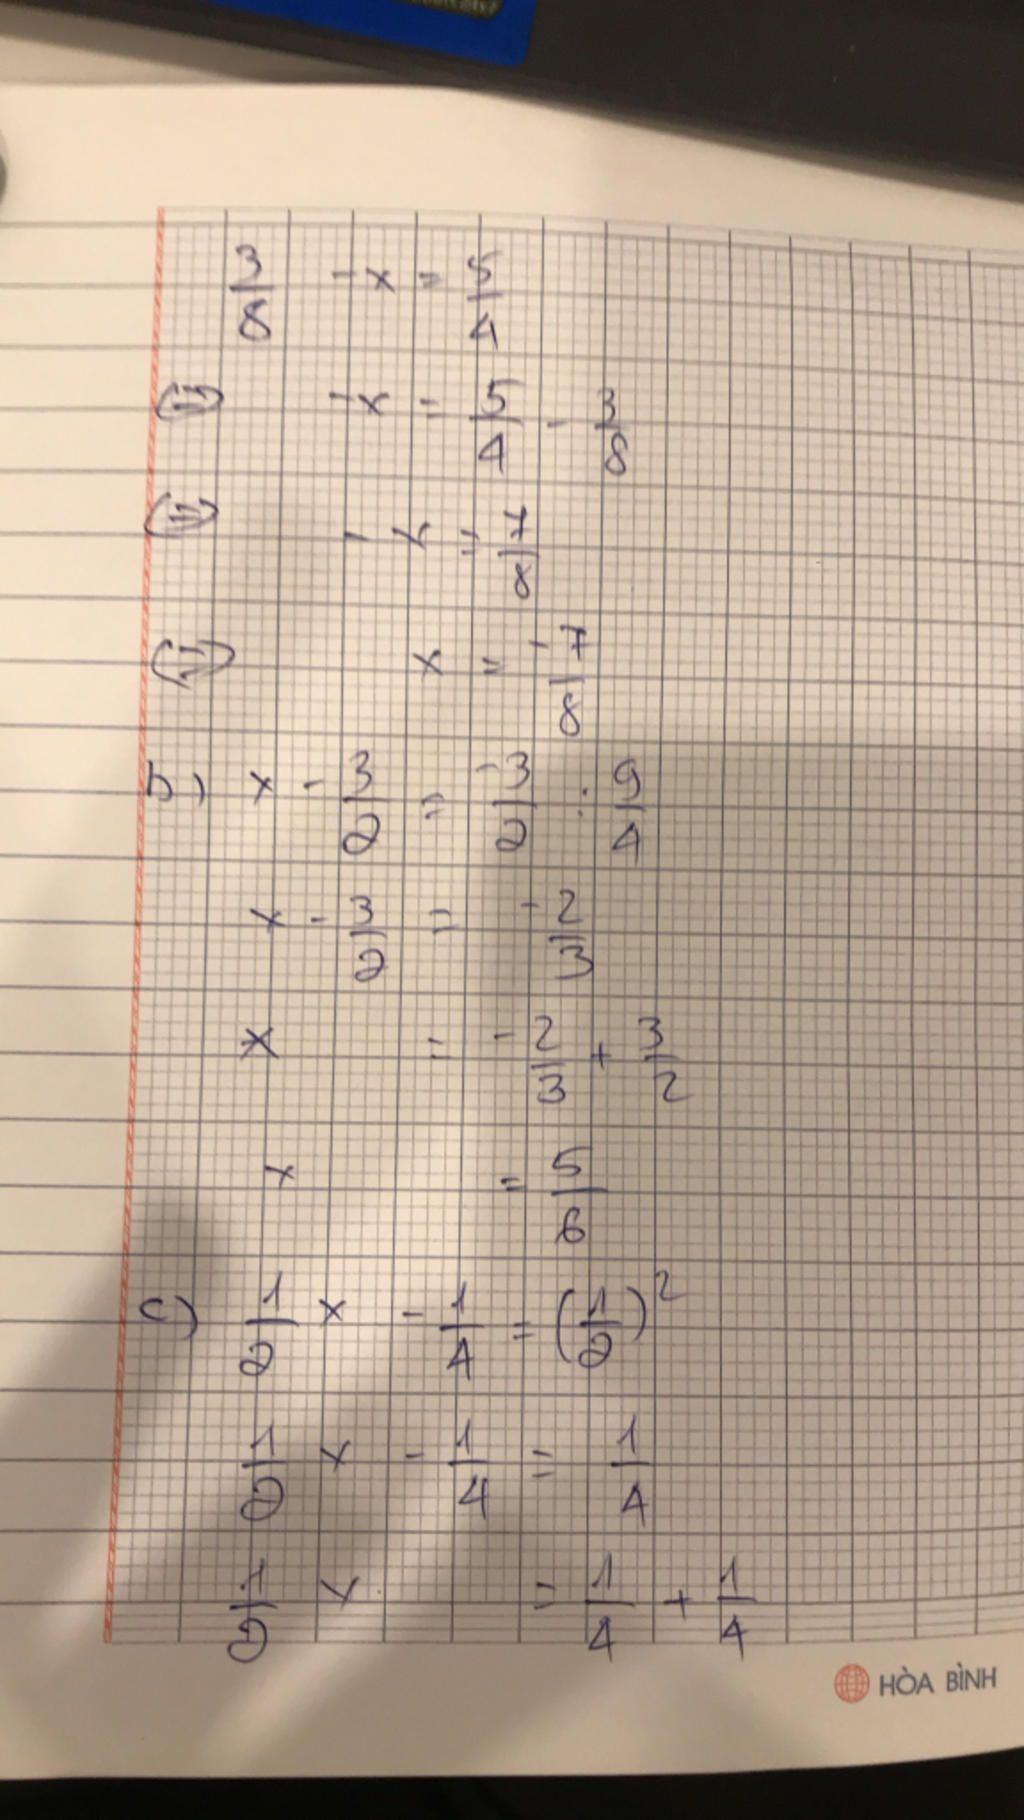 3/8 - x = 5/4
(=) - x = 5/4 - 3/8
(=) - x = 7/8
(=) x = -7/8
b) x - 3/2 = -3/2 : 9/4
x - 3/2 = -2/3
x = -2/3 + 3/2
x = 5/6
c) 1/2 x - 1/4 = (1/2)²
1/2 x - 1/4 = 1/4
1/2 x = 1/4 + 1/4
HÒA BÌNH